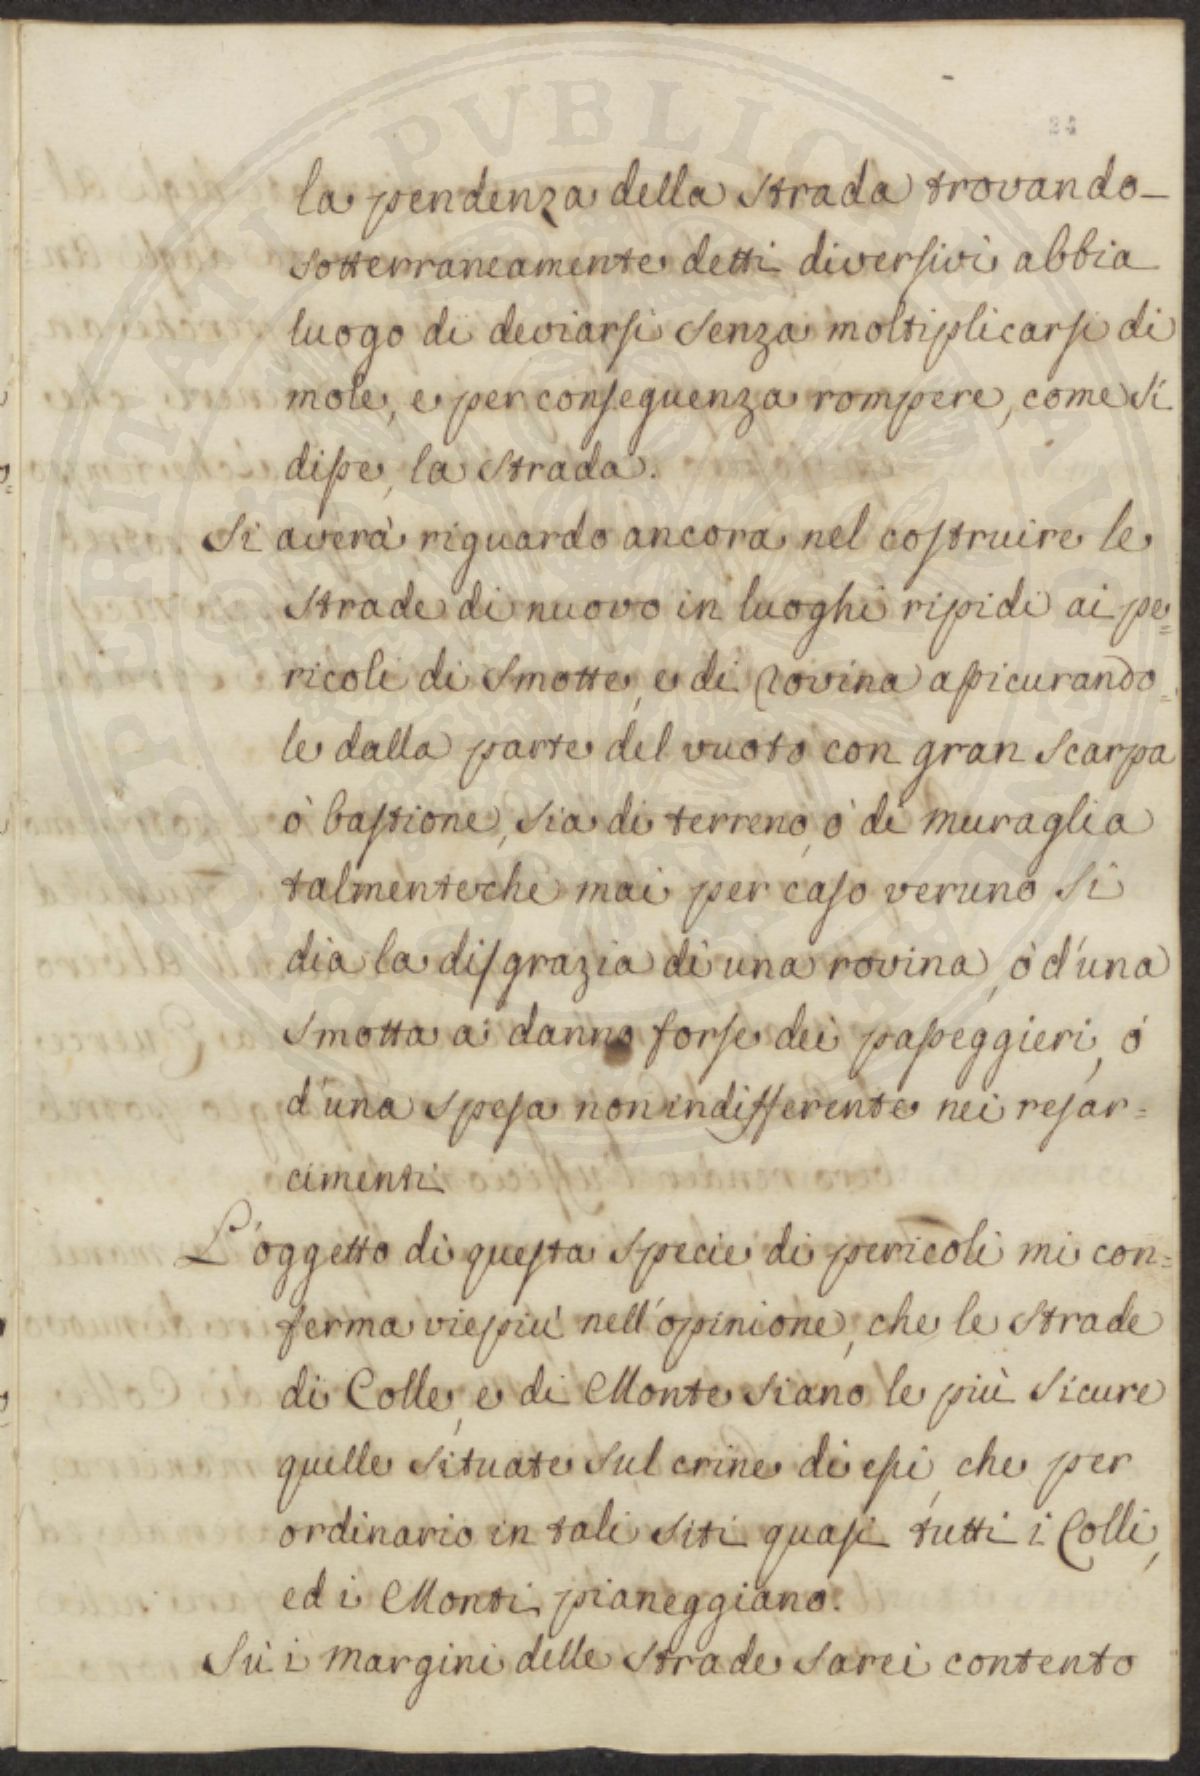 24
la pendenza della strada trovando
sotterraneamente detti diversivi abbia
luogo di deviarsi senza moltiplicarsi di
mole, e per conseguenza rompere, come si
disse, la strada.
Si averà riguardo ancora nel costruire le
strade di nuovo in luoghi ripidi ai pe=
ricoli di smotte, e di rovina assicurando=
le dalla parte del vuoto con gran scarpa
ò bastione, sia di terreno, ò di muraglia
talmenteche mai per caso veruno si
dia la disgrazia di una rovina, ò d'una
smotta a danno forse dei passeggieri, ó
d'una spesa non indifferente nei resar=
cimenti
L'oggetto di questa specie di pericoli mi con=
ferma viepiù nell'opinione, che le strade
di Colle, e di Monte siano le più sicure
quelle situate sul crine di essi, che per
ordinario in tali siti quasi tutti i Colli,
ed i Monti pianeggiano.
Sù i margini delle strade sarei contento